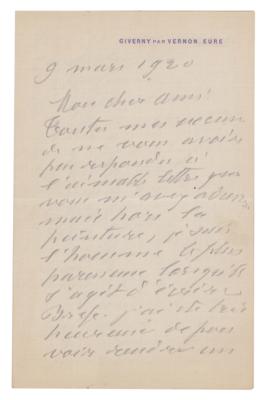 GIVERNY PAR VERNON. EURE
9 mars 1920
Mon cher ami
Toutes mes excuses
de ne vous avoir
pas répondu à
l'aimable lettre que
vous m'avez adressée
mais hors la
peinture, je suis
l'homme le plus
paresseux lorsqu'il
s'agit d'écrire
Bref. j'ai été très
heureux de pou
voir rendre un